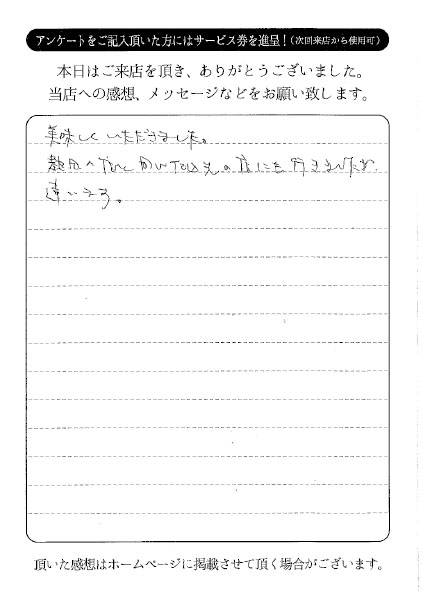 アンケートをご記入頂いた方にはサービス券を進呈！（次回来店から使用可）
本日はご来店を頂き、ありがとうございました。
当店への感想、メッセージなどをお願い致します。
美味しくいただきました。
の店にも行きましたが、
違いますね。
頂いた感想はホームページに掲載させて頂く場合がございます。